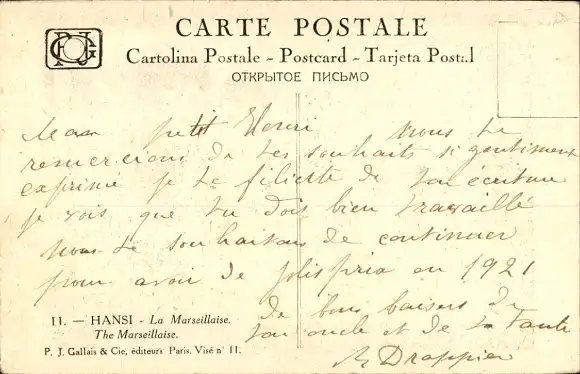 CARTE POSTALE
Cartolina Postale - Postcard - Tarjeta Postal
ОТКРЫТОЕ ПИСЬМО
petit Henri nous te
remercions de tes souhaits si gentiment
exprimé je te félicite de ton écriture
je vois que tu dois bien travaillé
nous te souhaitons de continuer
pour avoir de jolis prix en 1921
de bons baisers de
ton oncle et de ta Tante
Drappier
11. — HANSI - La Marseillaise.
The Marseillaise.
P. J. Gallais & Cie, éditeurs Paris. Visé n° 11.